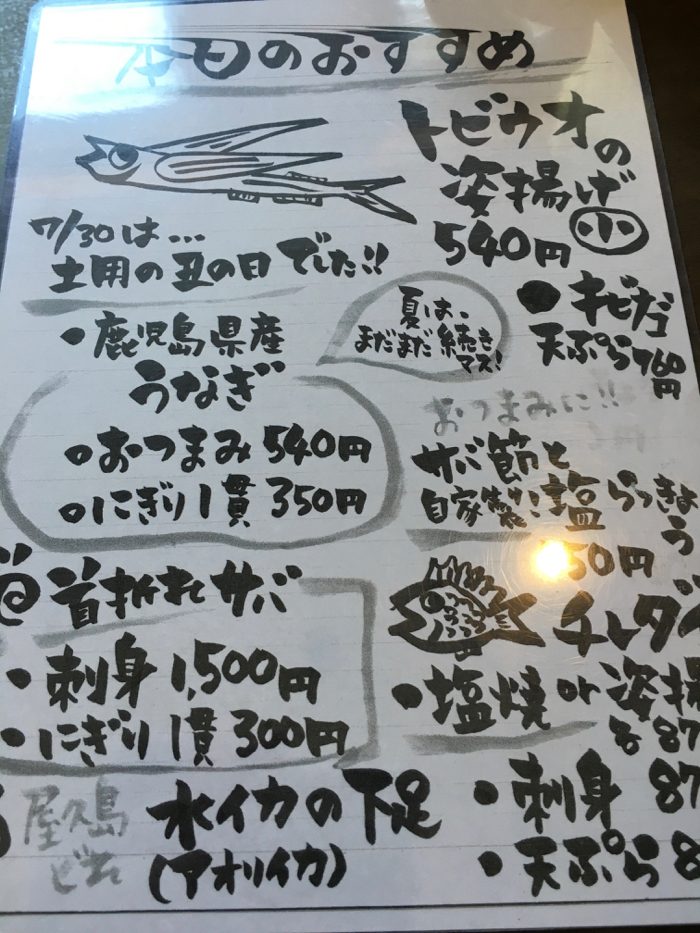 本日のおすすめ
トビウオの
姿揚げ 小
540円
7/30は…
土用の丑の日でした!!
夏は、
まだまだ続き
マス!
・鹿児島県産
うなぎ
○おつまみ 540円
○にぎり1貫 350円
●キビナゴ
天ぷら760円
おつまみに!!
サバ節と
自家製塩らっきょ
50円
首折れサバ
・刺身 1,500円
・にぎり1貫 300円
・塩焼 or 姿揚
・刺身 87
・天ぷら 8
屋久島
水イカの下足
(アオリイカ)